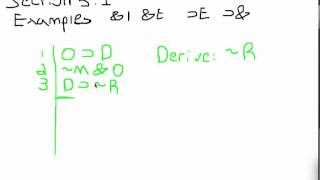 Section 5.1
Examples &I &E ⊃E ⊃&
1 O ⊃ D Derive: ~R
2 ~M & O
3 D ⊃ ~R